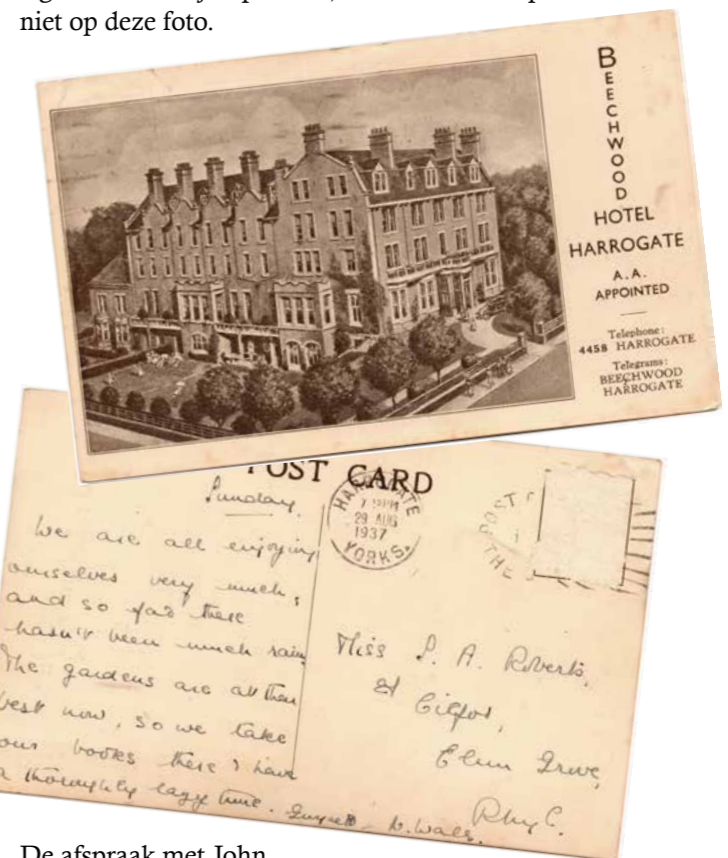 niet op deze foto.
BEECHWOOD
HOTEL
HARROGATE
A.A.
APPOINTED
Telephone:
4458 HARROGATE
Telegrams:
BEECHWOOD
HARROGATE
POST CARD
Sunday.
We are all enjoying
ourselves very much,
and so far there
hasn't been much rain
The gardens are at their
best now, so we take
our books there & have
a thoroughly lazy time.
HARROGATE
29 AUG
1937
YORKS.
POST
THE
Miss A. Roberts,
Elm Grove,
Rhyl.
N. Wales.
De afspraak met John